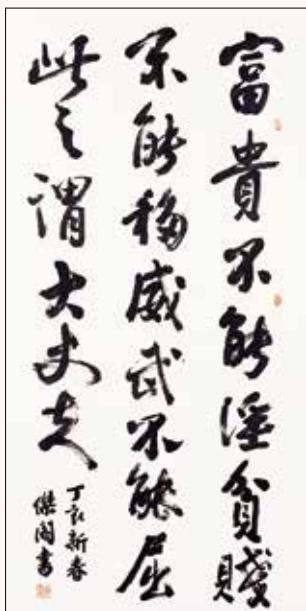 富貴不能淫貧賤
不能移威武不能屈
此之謂大丈夫
丁亥新春
傑閣書